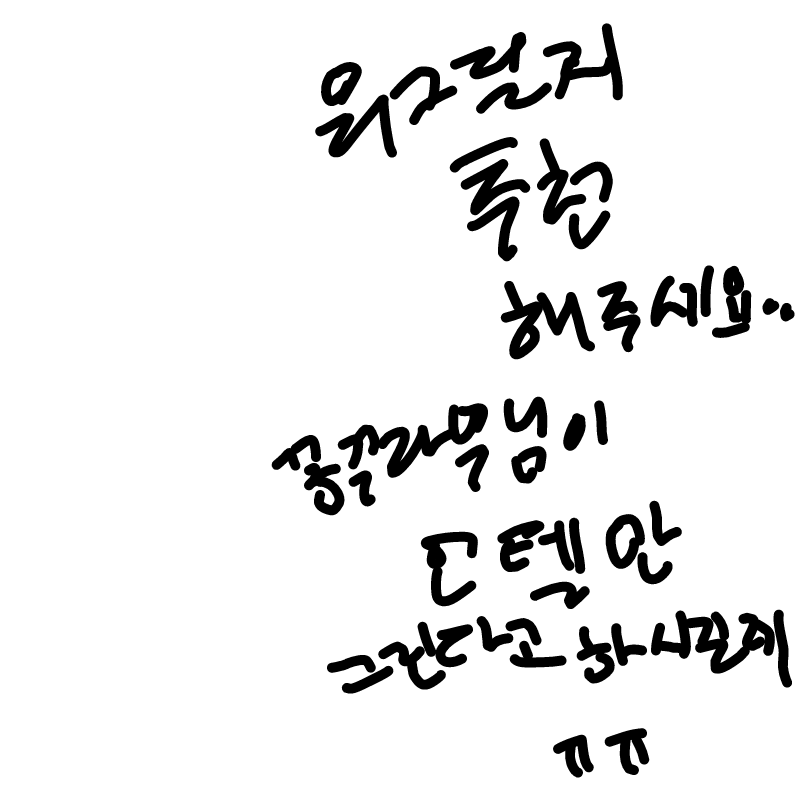 뭐그릴지
특천
해주세요..
꽁꿀라무님이
모텔안
그린다고 하시길래
ㅠㅠ